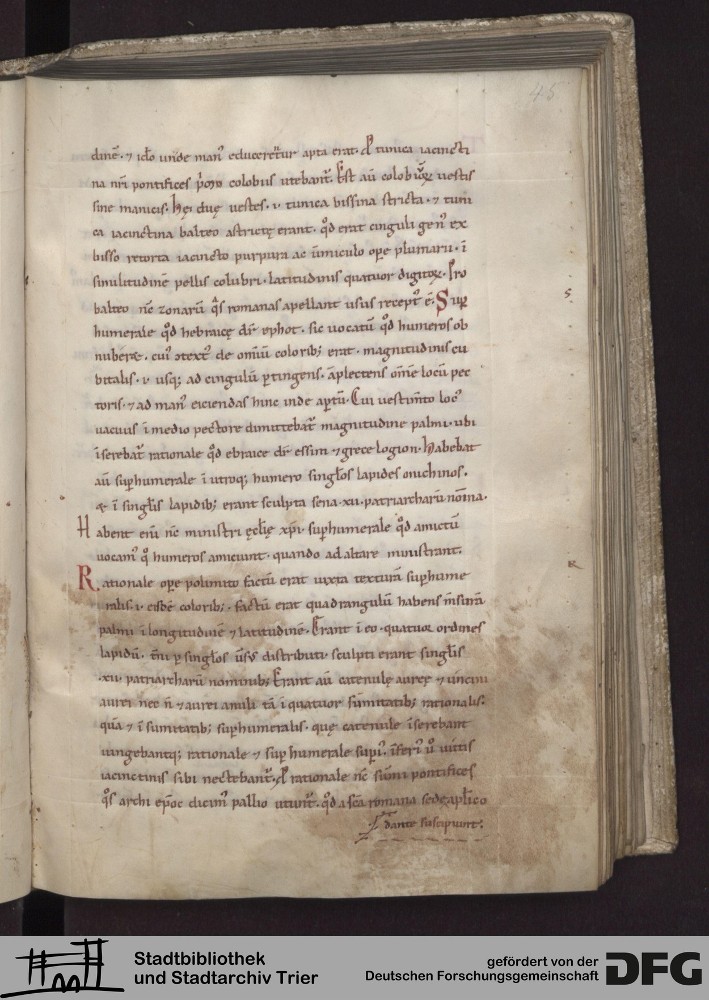 45
dinē · ⁊ idō unde man᷒ educeret᷑ur apta erat · P̄ tunica iacincti
na nr̄i pontifices p̄mo colobiis utebant᷑ · Est aū colobiūꝝ uestis
sine manicis · hęi duę uestes · i · tunica bissina stricta · ⁊ tuni
ca iacinctina balteo astrictę erant · qd̄ erat cinguli gen᷒ ex
bisso retorta iacincto purpura ac ūmiculo opē plumarii · ī
similitudinē pellis colubri · latitudinis quatuor digitoꝝ · Pro
balteo nc̄ zonarū q̄s romanas apellant usus recept᷒ ē · Sup
humerale qd̄ hebraicę dr̄ ephot · sic uocatū qd̄ humeros ob
nuberet · cui᷒ ↄtext᷒ de om̄iū colorib; erat · magnitudinis cu
bitalis · i · usq; ad cingulū ptingens · āplectens om̄ne locū pec
toris · ⁊ ad man᷒ eiciendas hinc inde aptū · Cui uestim̄to loc᷒
uacuus ī medio pectore dimittebat᷑ magnitudine palmi · ubi
īserebat᷑ rationale qd̄ ebraice dr̄ essim ⁊ grece logion · habebat
aū suphumerale ī utroq; humero singl̄os lapides onichinos ·
& ī singl̄is lapidib; erant sculpta sena · xii · patriarcharū nōina ·
Habent eni nc̄ ministri ęcl̄ię xp̄i · suphumerale qd̄ amictū
uocam᷒ qͦ humeros amiciunt · quando ad altare ministrant ·
Rationale opē polimito factū erat iuxta texturā suphume
ralis · i · eisdē colorib; · factū erat quadrangulū habens m̄surā
palmi ī longitudinē ⁊ latitudinē · Erant ī eo · quatuor ordines
lapidū · t̄ni p singl̄os ūsus distributi · sculpti erant singl̄is
· xii · patriarcharū nominib; Erant aū catenulę aureę ⁊ uncini
aurei nec n̄ ⁊ aurei anuli tā ī quatuor sūmitatib; rationalis ·
quā ⁊ ī sumitatib; suphumeralis · quę catenule īserebant᷑
iungebantq; rationale ⁊ suphumerale supi᷒ · īferi᷒ uͦ uittis
iacinctinis sibi nectebant᷑ · P̄ rationale nc̄ sūmi pontifices
qͦs archiep̄oc dicim᷒ pallio utunt᷑ · qd̄ a sc̄a romana sede apl̄ico
dante suscipiunt ·
S
R
Stadtbibliothek
und Stadtarchiv Trier
gefördert von der
Deutschen Forschungsgemeinschaft
DFG